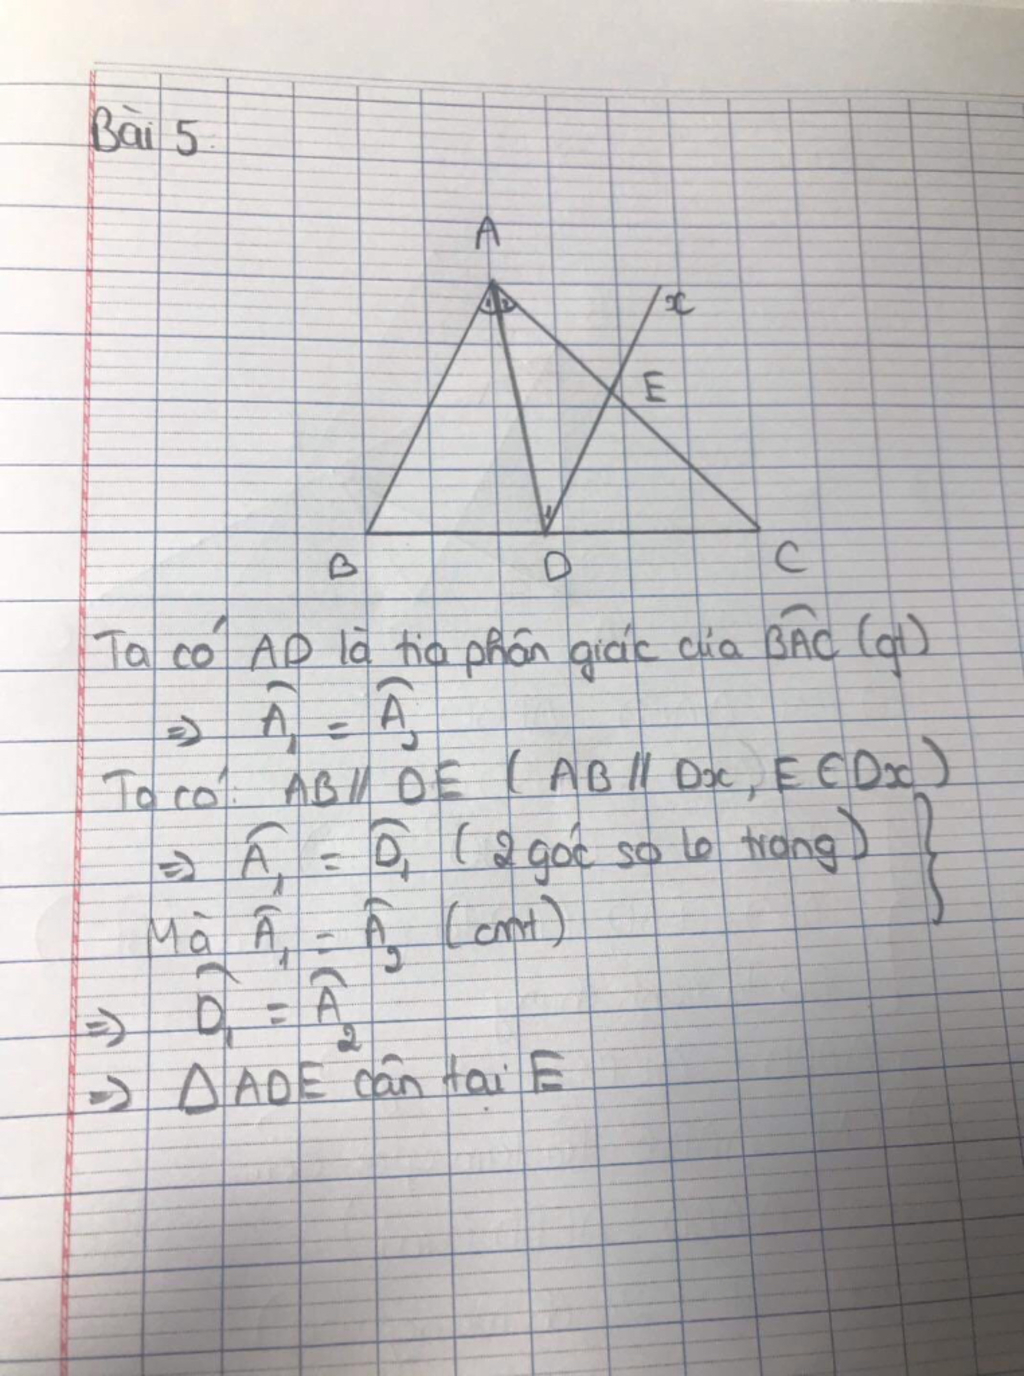 Bài 5.
A
1 2
x
E
1
B D C
Ta có AD là tia phân giác của BAC (gt)
=> A1 = A2
Ta có: AB // DE ( AB // Dx, E ∈ Dx )
=> A1 = D1 ( 2 góc so le trong ) }
Mà A1 = A2 (cmt)
=> D1 = A2
=> ΔADE cân tại E